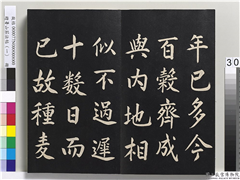 年已多今
百穀齊成
與内地相
似不過遲
十數日而
已故種麦
30